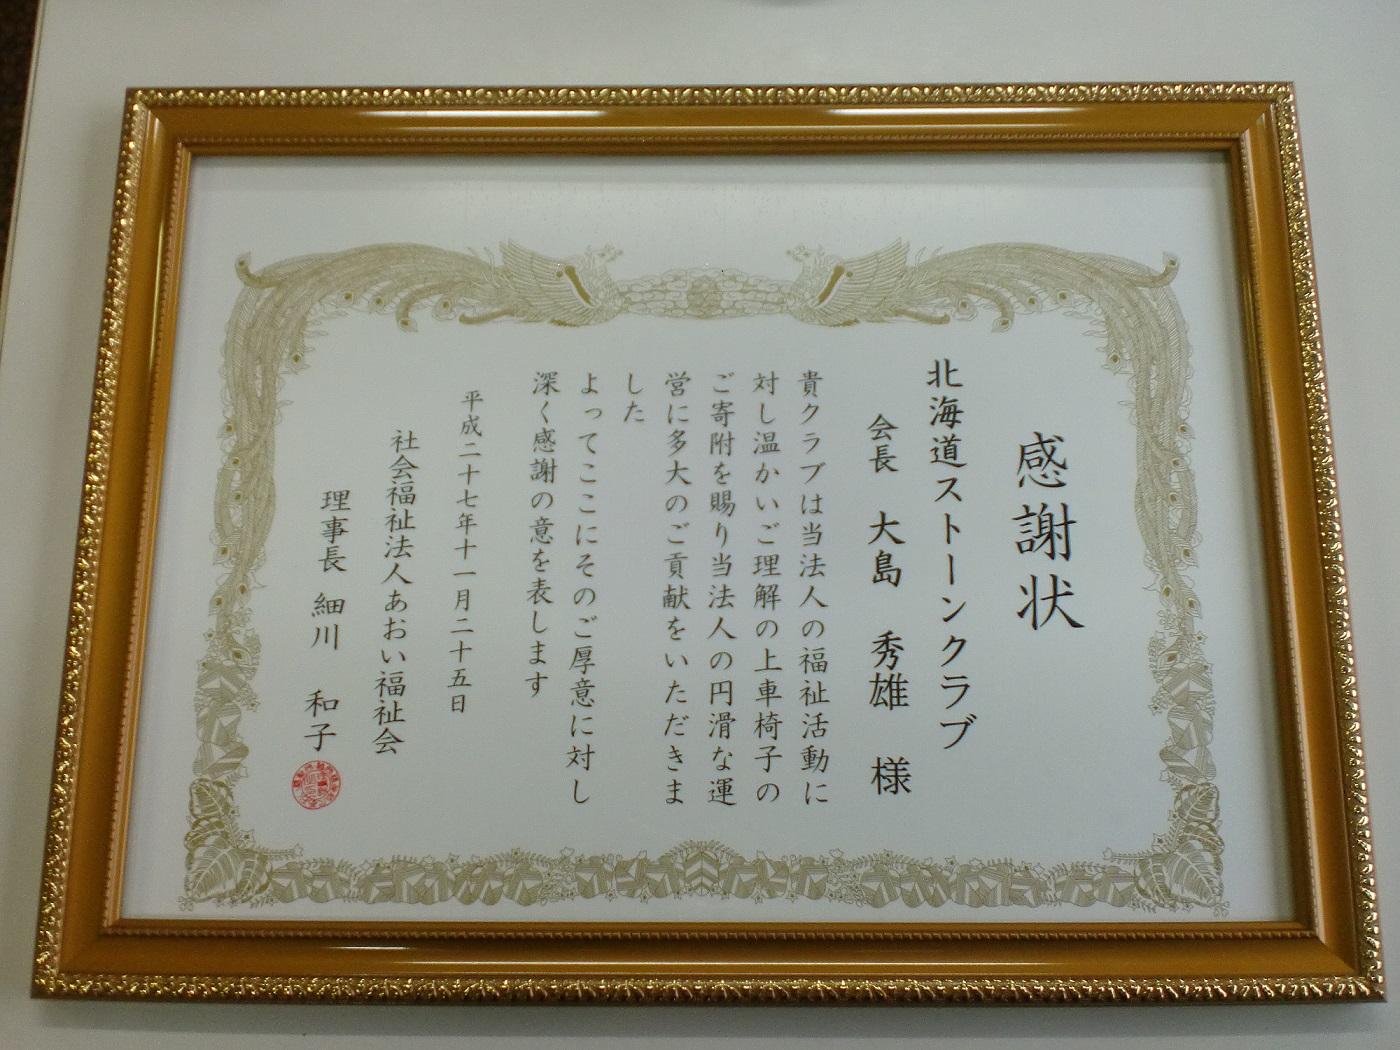 感謝状
北海道ストーンクラブ
会長 大島 秀雄 様
貴クラブは当法人の福祉活動に
対し温かいご理解の上車椅子の
ご寄附を賜り当法人の円滑な運
営に多大のご貢献をいただきま
した
よってここにそのご厚意に対し
深く感謝の意を表します
平成二十七年十一月二十五日
社会福祉法人あおい福祉会
理事長 細川 和子